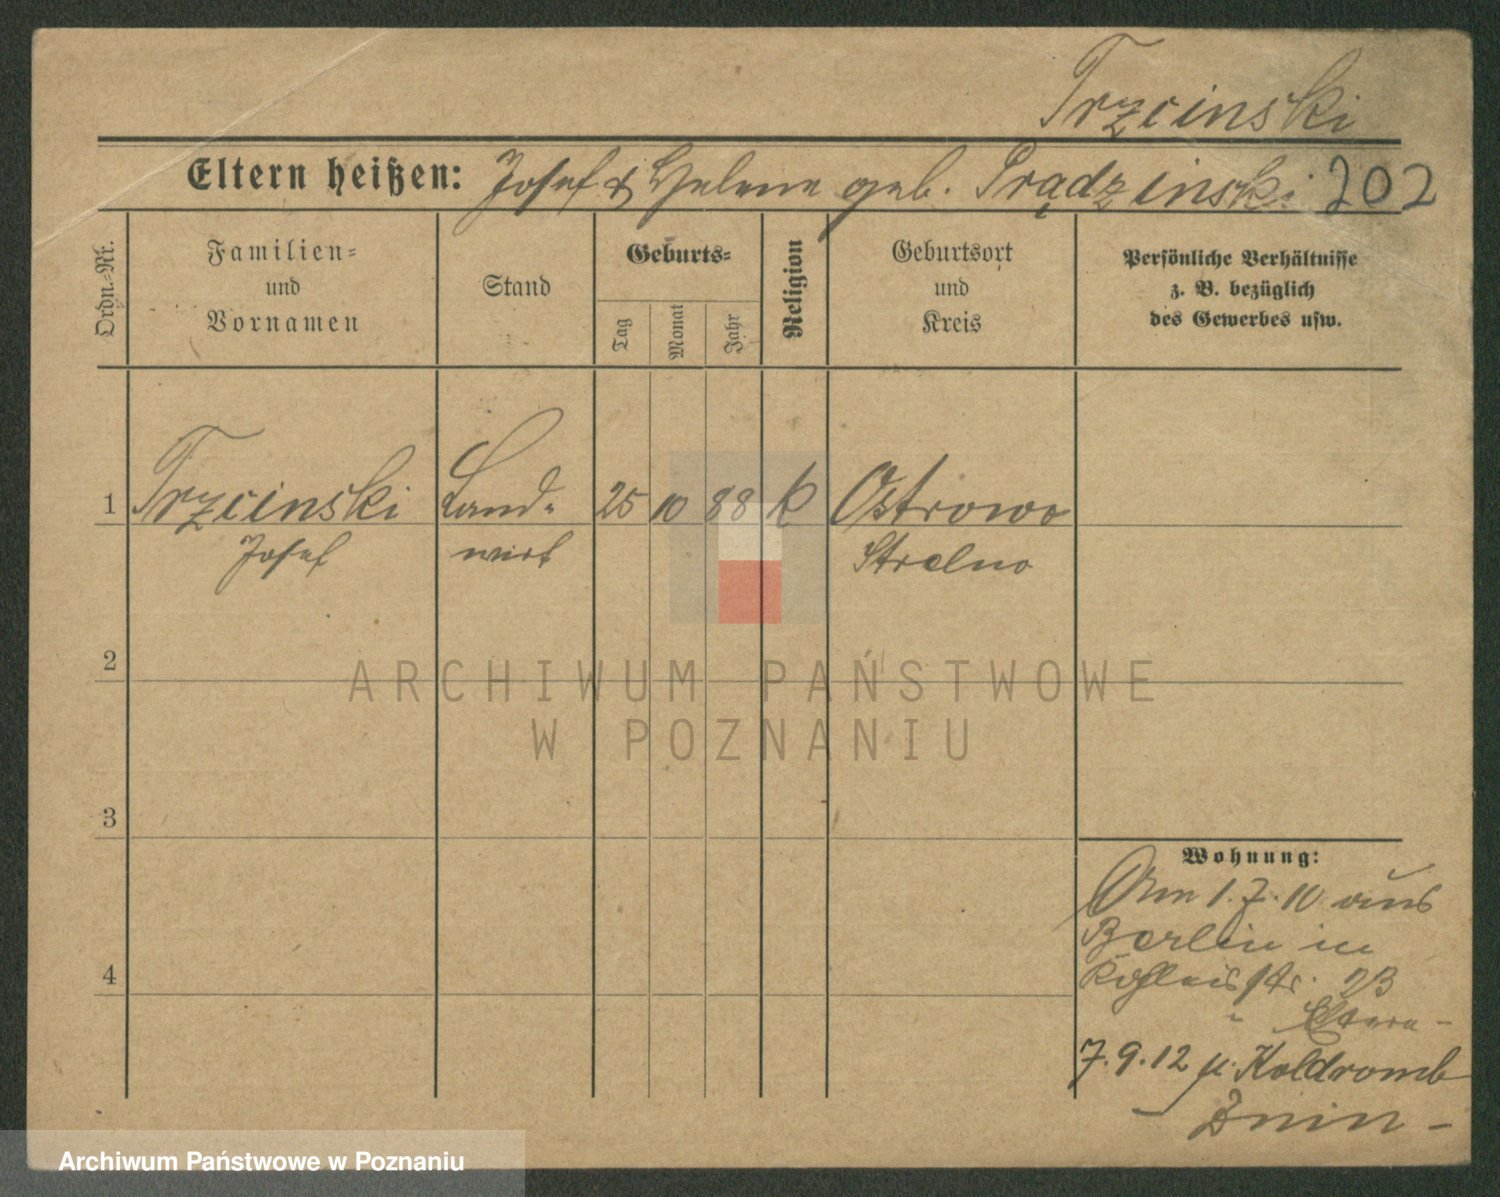 Trzcinski
Eltern heißen: Josef & Helene geb. Prądzinski 202
Ordn.-Nr.
Familien-
und
Vornamen
Stand
Geburts-
Tag
Monat
Jahr
Religion
Geburtsort
und
Kreis
Persönliche Verhältnisse
z. B. bezüglich
des Gewerbes usw.
1 Trzcinski Land- 25 10 88 k Ostrowo
Josef wirt Strelno
2
3
4
Wohnung:
Am 1.7.10 aus
Berlin in
str. 23
Eltern -
7.9.12 n. Koldromb
- Znin -
ARCHIWUM PAŃSTWOWE
W POZNANIU
Archiwum Państwowe w Poznaniu